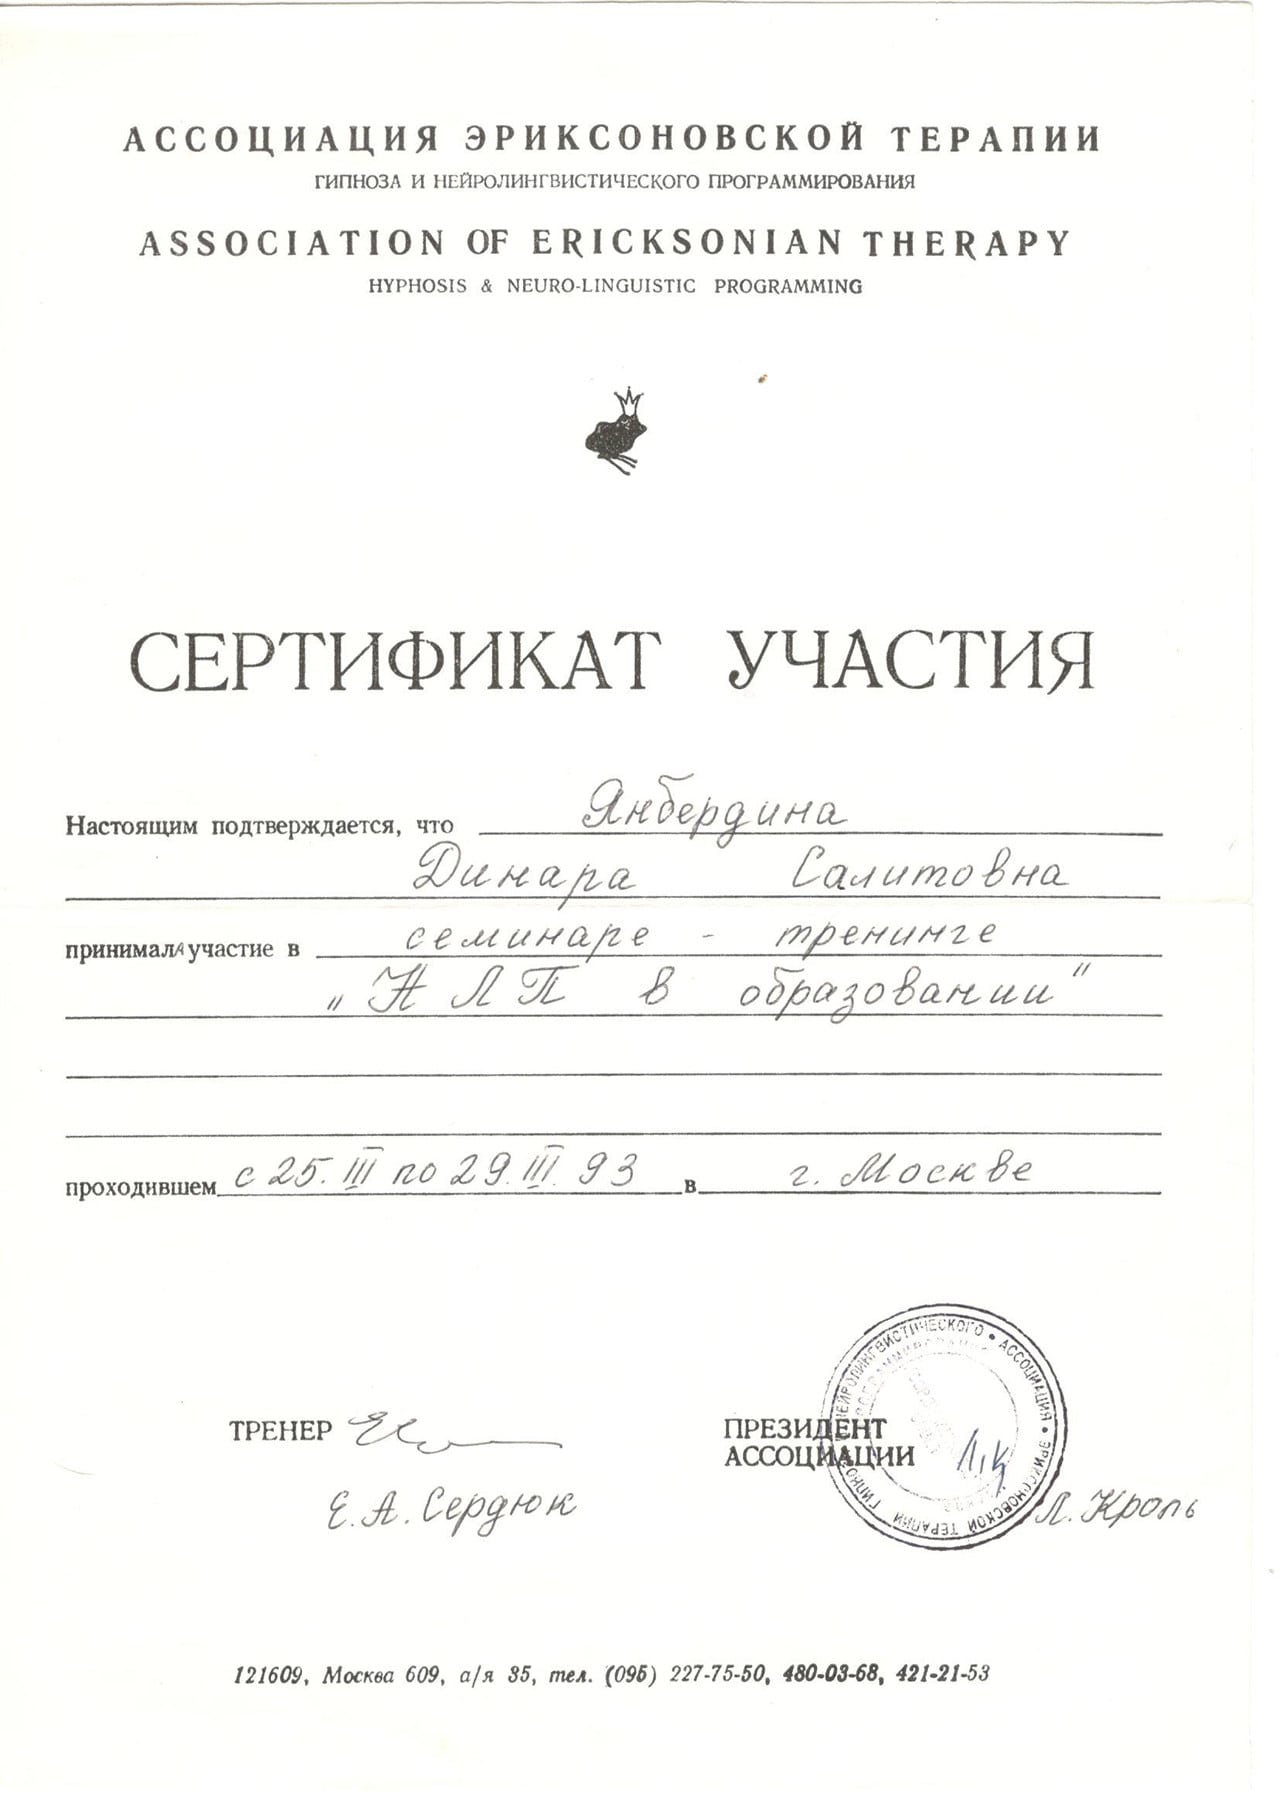 АССОЦИАЦИЯ ЭРИКСОНОВСКОЙ ТЕРАПИИ
ГИПНОЗА И НЕЙРОЛИНГВИСТИЧЕСКОГО ПРОГРАММИРОВАНИЯ
ASSOCIATION OF ERICKSONIAN THERAPY
HYPHOSIS & NEURO-LINGUISTIC PROGRAMMING
СЕРТИФИКАТ УЧАСТИЯ
Настоящим подтверждается, что Янбердина
Динара Салитовна
принимала участие в семинаре - тренинге
„НЛП в образовании"
проходившем с 25. III по 29. III. 93 в г. Москве
ТРЕНЕР
Е. А. Сердюк
ПРЕЗИДЕНТ
АССОЦИАЦИИ
Л. Кроль
АССОЦИАЦИЯ • ЭРИКСОНОВСКОЙ ТЕРАПИИ ГИПНОЗА НЕЙРОЛИНГВИСТИЧЕСКОГО •
121609, Москва 609, а/я 35, тел. (095) 227-75-50, 480-03-68, 421-21-53